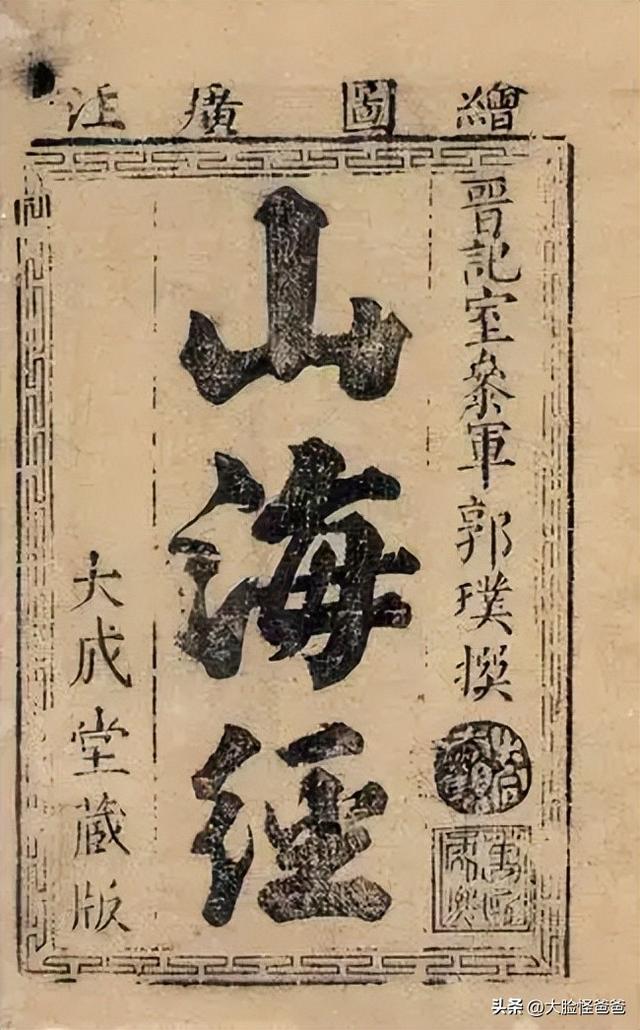 繪圖廣注
晉記室參軍郭璞撰
山海經
大成堂藏版
头条 @大脸怪爸爸